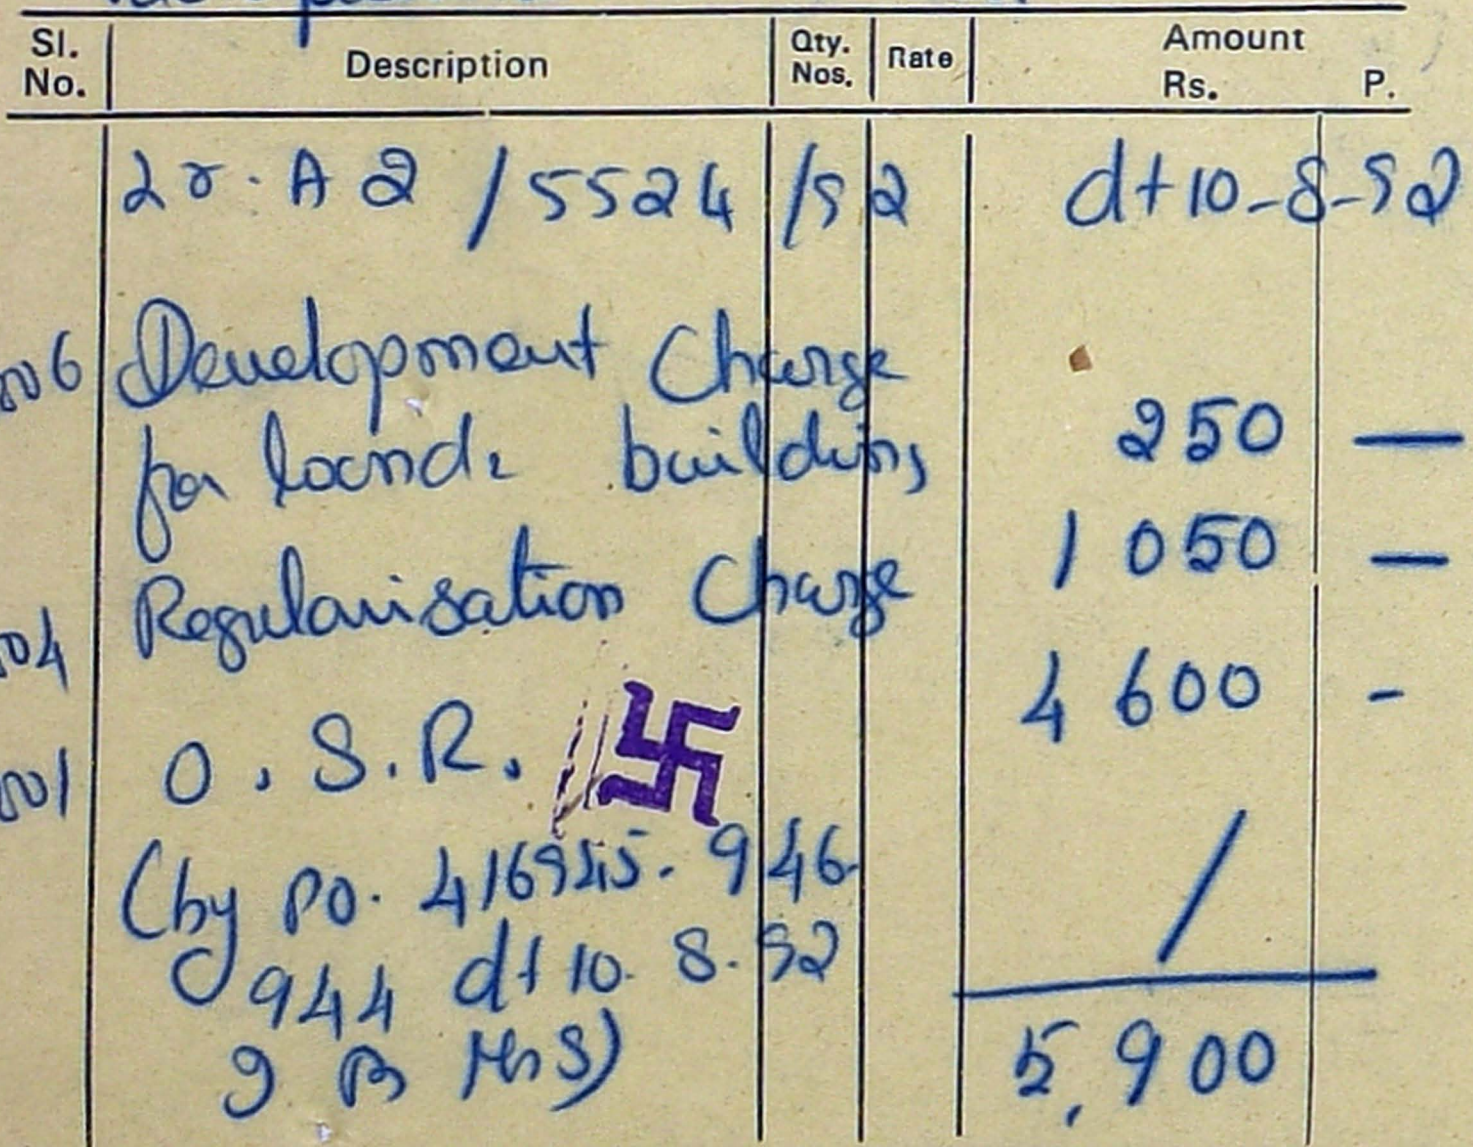 Sl. No. Description Qty. Nos. Rate Amount Rs. P.
Lr. A2/5524/92 dt 10-8-92
006 Development Charge
for land & building 250 —
Regularisation Charge 1050 —
004
O.S.R. 4600 -
001
(by PO. 416945. 946
944 dt 10. 8. 92
5,900